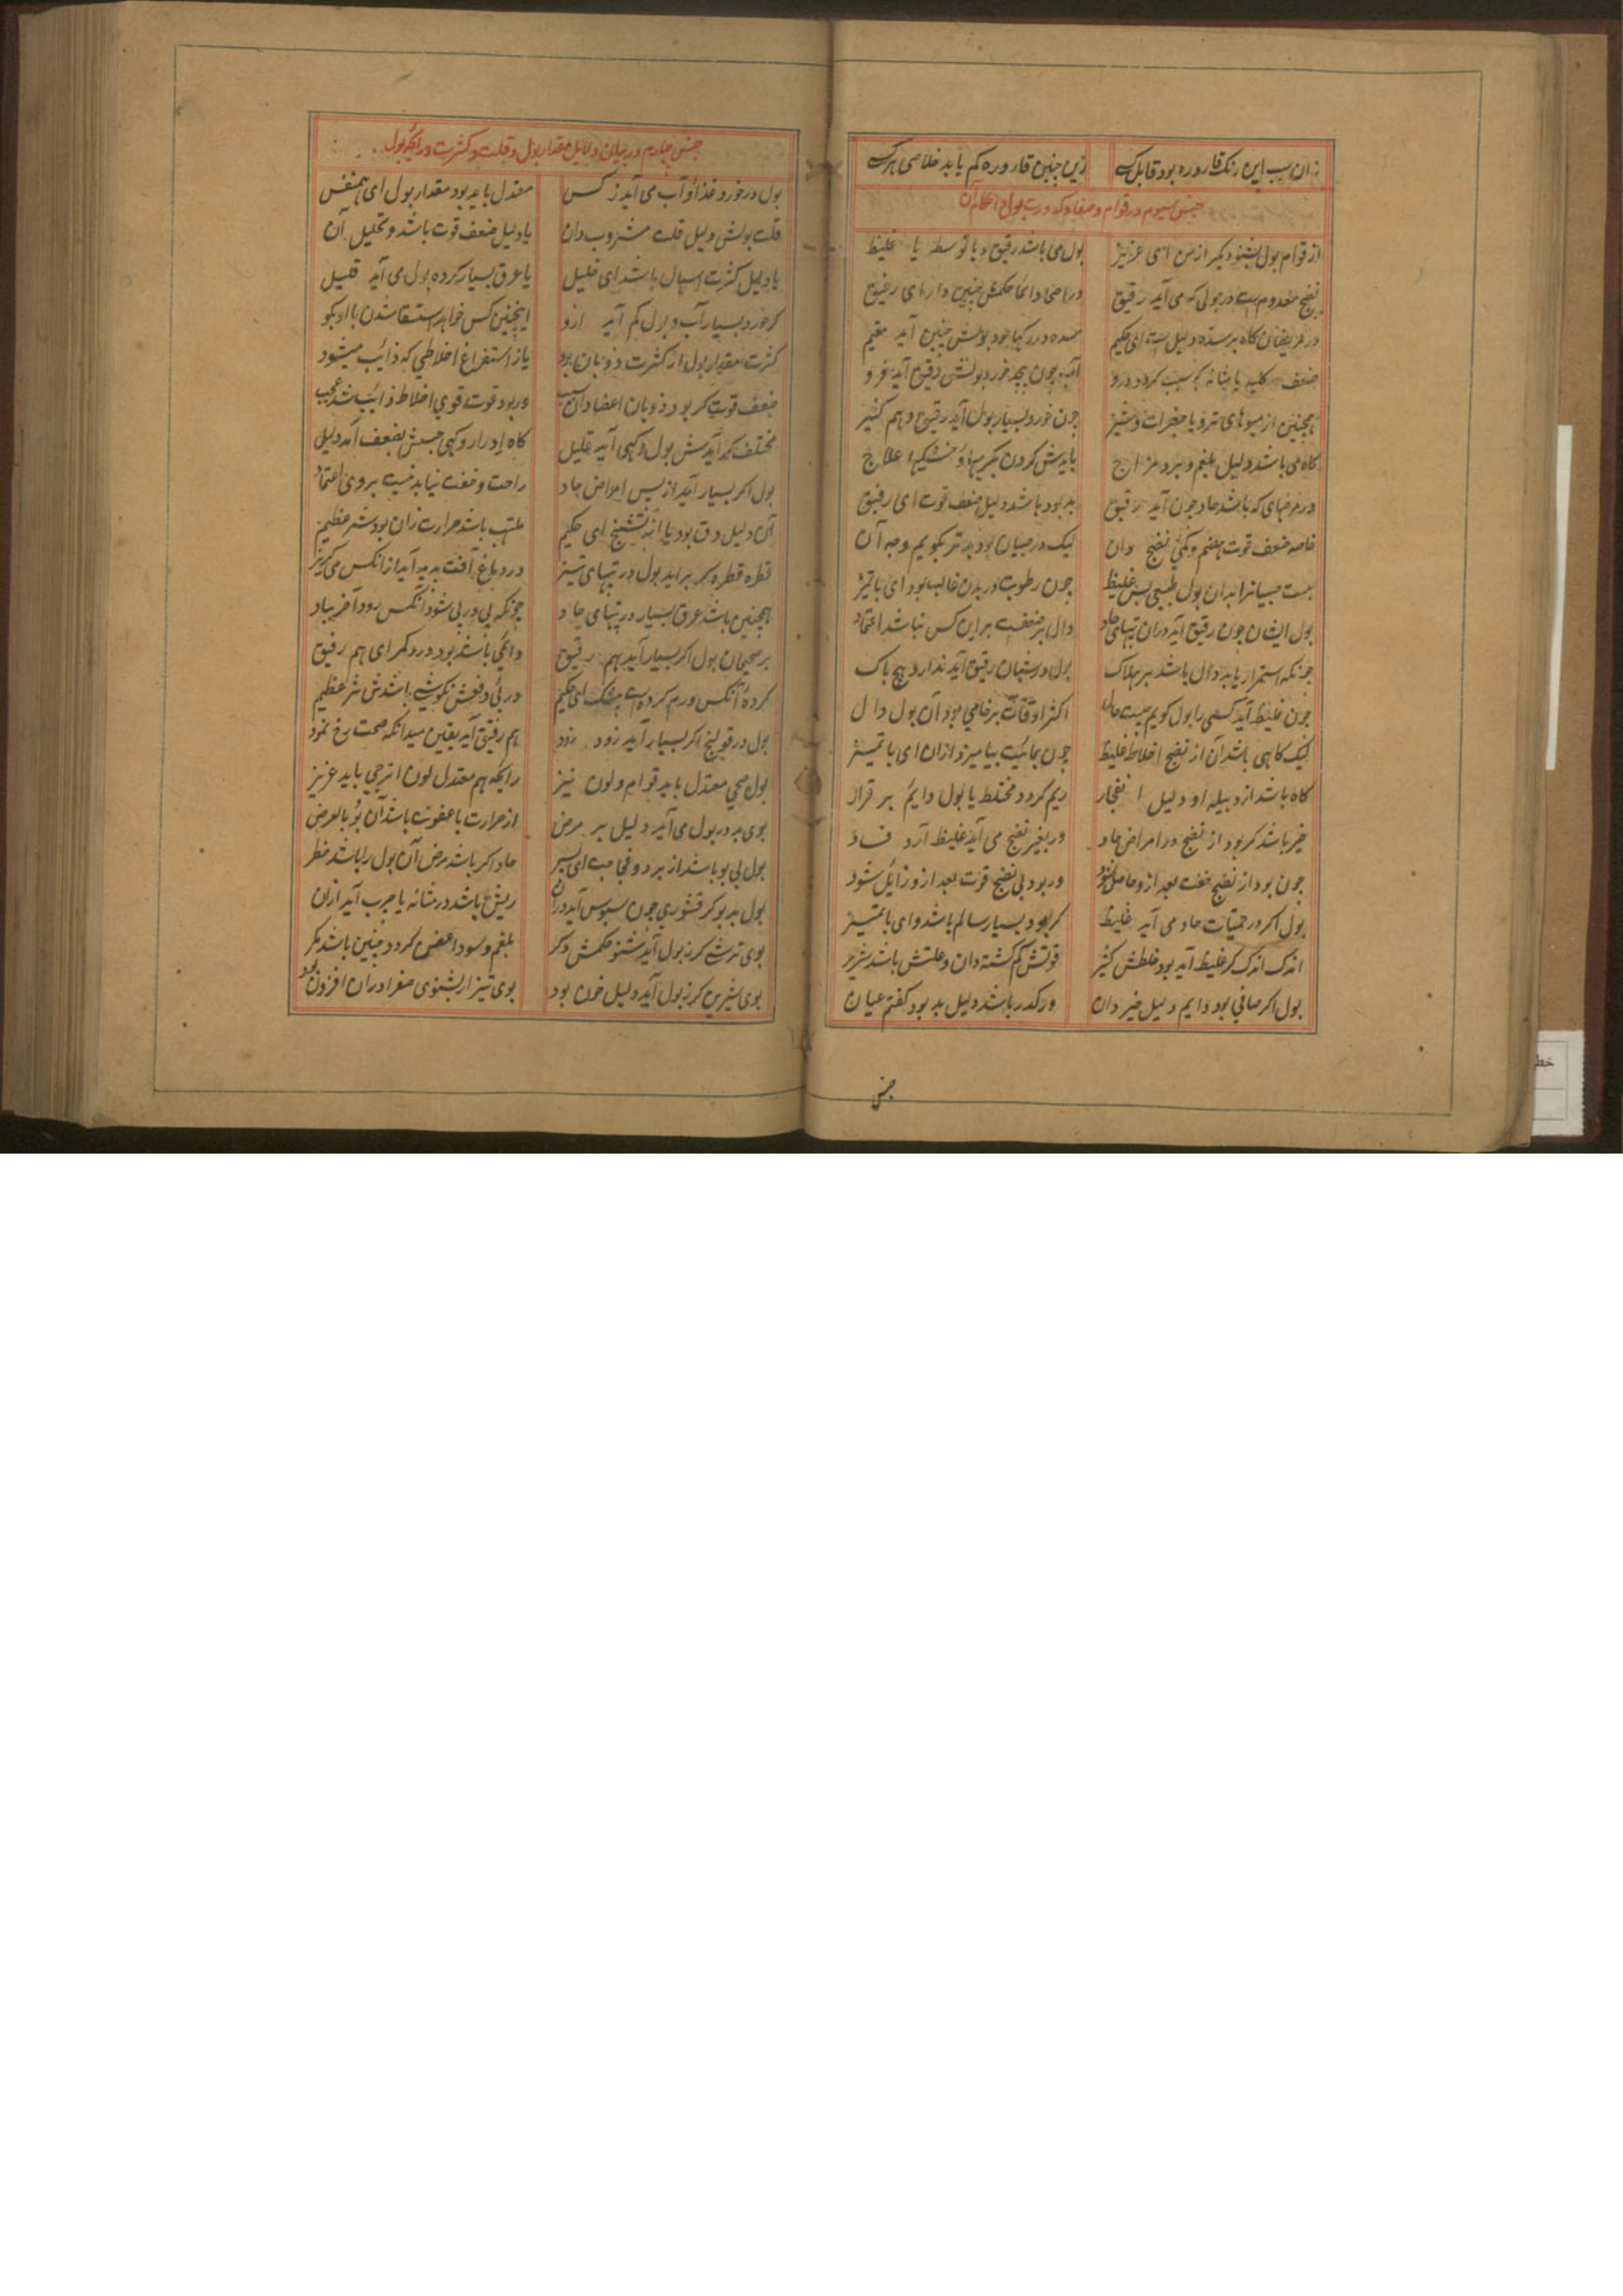 زان سبب این رنک قاروره بود قابل زین چنین قاروره کم یابد خلاصی
جنس سیوم در قوام و صفا و کدورت بول و احکام آن
از قوام بول بشنو دیکر از من ای عزیز بول می باشد رقیق و با توسط یا غلیظ
نضج معدوم است در بولی که می آید رقیق در اصحا دائما حکمش چنین دار ای رفیق
در مریضان کاه بر سده دلیل است ای حکیم سده در رکها بود بولش چنین آید مقیم
ضعف کلیه یا مثانه آب چون بیحد خورد بولش رقیق آید فرو
همچنین از میوهای تر و یا چون خورد بسیار بول آید رقیق و هم کثیر
کاه می باشد دلیل بلغم و برد مزاج بایدش کردن بکرمیها و خشکیها علاج
در مرضهای که باشد حاد چون آید رقیق بد بود باشد دلیل ضعف قوت ای رفیق
خاصه ضعف قوت هضم و کمی نضج دان لیک در صبیان بود بدتر بکویم وجه آن
هست صبیانرا بدان بول طبیعی بس غلیظ چون رطوبت در بدن غالب بود ای با تمیز
بول ایشان چون رقیق آید دران تبهای حاد دال بر ضعفست بر این کس نباشد اعتماد
چونکه استمرار یابد دال باشد بر هلاک بول در شبان رقیق آید ندارد هیچ باک
چون غلیظ آید کسی را بول کویم چیست حال اکثر اوقات بر خامی بود آن بول دال
لیک کاهی باشد آن از نضج اخلاط غلیظ چون بمائیت بیامیزد ازان ای با تمیز
کاه باشد از دبیله او دلیل انفجار ریم کردد مختلط با بول دایم بر قرار
خیر باشد کر بود از نضج در امراض حاد ور بغیر نضج می آید غلیظ آرد فساد
چون بود از نضج خفت بعد ازو حاصل شود ور بود بی نضج قوت بعد ازو زایل شود
بول اکر در حمیات حاد می آید غلیظ کر بود بسیار سالم باشد و ای با تمیز
اندک اندک کر غلیظ آید بود غلظش کثیر قوتش کم کشته دان و علتش باشد
بول اکر صافی بود دایم دلیل خیر دان ور کدر باشد دلیل بد بود کفتم عیان
جنس
جنس چهارم در بیان دلایل مقدار بول و قلت و کثرت و رائحه بول
بول در خورد غذا و آب می آید ز کس معتدل باید بود مقدار بول ای همنفس
قلت بولش دلیل قلت مشروب دان یا دلیل ضعف قوت باشد و تحلیل آن
یا دلیل کثرت اسهال باشد ای خلیل یا عرق بسیار کرده بول می آید قلیل
کر خورد بسیار آب و بول کم آید ازو اینچنین کس خواهد استسقا شدن با او بکو
کثرت مقدار بول از کثرت ذوبان بود یا ز استفراغ اخلاطی که ذائب میشود
ضعف قوت کر بود ذوبان اعضا دان سبب ور بود قوت قوی اخلاط ذائب شد عجب
مختلف کر آیدش بول و کهی آید قلیل کاه ادرار و کهی حبسش بضعف آمد دلیل
بول اکر بسیار آید از پس امراض حاد راحت و خفت نیابد نیست بر وی اعتماد
آن دلیل دق بود یا از تشنج ای حکیم ملتهب باشد حرارت زان بود شر عظیم
قطره قطره کر براید بول در تبهای تیز در دماغ آفت پدید آید ازانکس می کریز
همچنین باشد عرق بسیار در تبهای حاد چونکه پی در پی شود انکس رود آخر بباد
بر صحیحان بول اکر بسیار آید هم رقیق دائمی باشد بود درد کمر ای هم رفیق
کرده آنکس ورم کرده است بیشک ای حکیم در پی دفعش نکوشی باشدش شر عظیم
بول در قولنج اکر بسیار آید زود زود هم رقیق آید یقین میدانکه صحت رخ نمود
بول صحی معتدل باید قوام و لون نیز رایحه هم معتدل لون اترجی باید عزیز
بوی بد در بول می آید دلیل بر مرض از حرارت با عفونت باشد آن بو بالعرض
بول بی بو باشد از برد و فجاجت ای پسر حاد اکر باشد مرض آن بول را باشد خطر
بول بد بو کر قشوری چون سبوس آید دران ریش باشد در مثانه یا جرب آید ازان
بوی ترش کر ز بول آید شنو حکمش دکر بلغم و سودا عفن کردد چنین باشد مکر
بوی شیرین کر ز بول آید دلیل خون بود بوی تیز ار بشنوی صفرا دران افزون بود